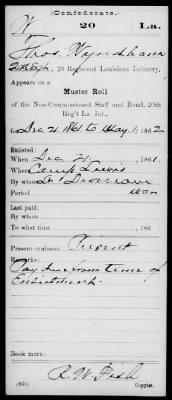 (Confederate.)
W 20 La.
Thos. Wyndham
20 Regiment Louisiana Infantry.
Appears on a
Muster Roll
of the Non-Commissioned Staff and Band, 20th
Reg't La. Inf.,
for Dec 21. 1861 to May 1, 1862
Enlisted:
When Dec 21, 1861.
Where Camp Lewis
By whom
Period War
Last paid:
By whom
To what time , 186
Present or absent Present
Remarks:
Pay due from time of
Enlistment.
Book mark:
(650) R. W. Fish
Copyist.